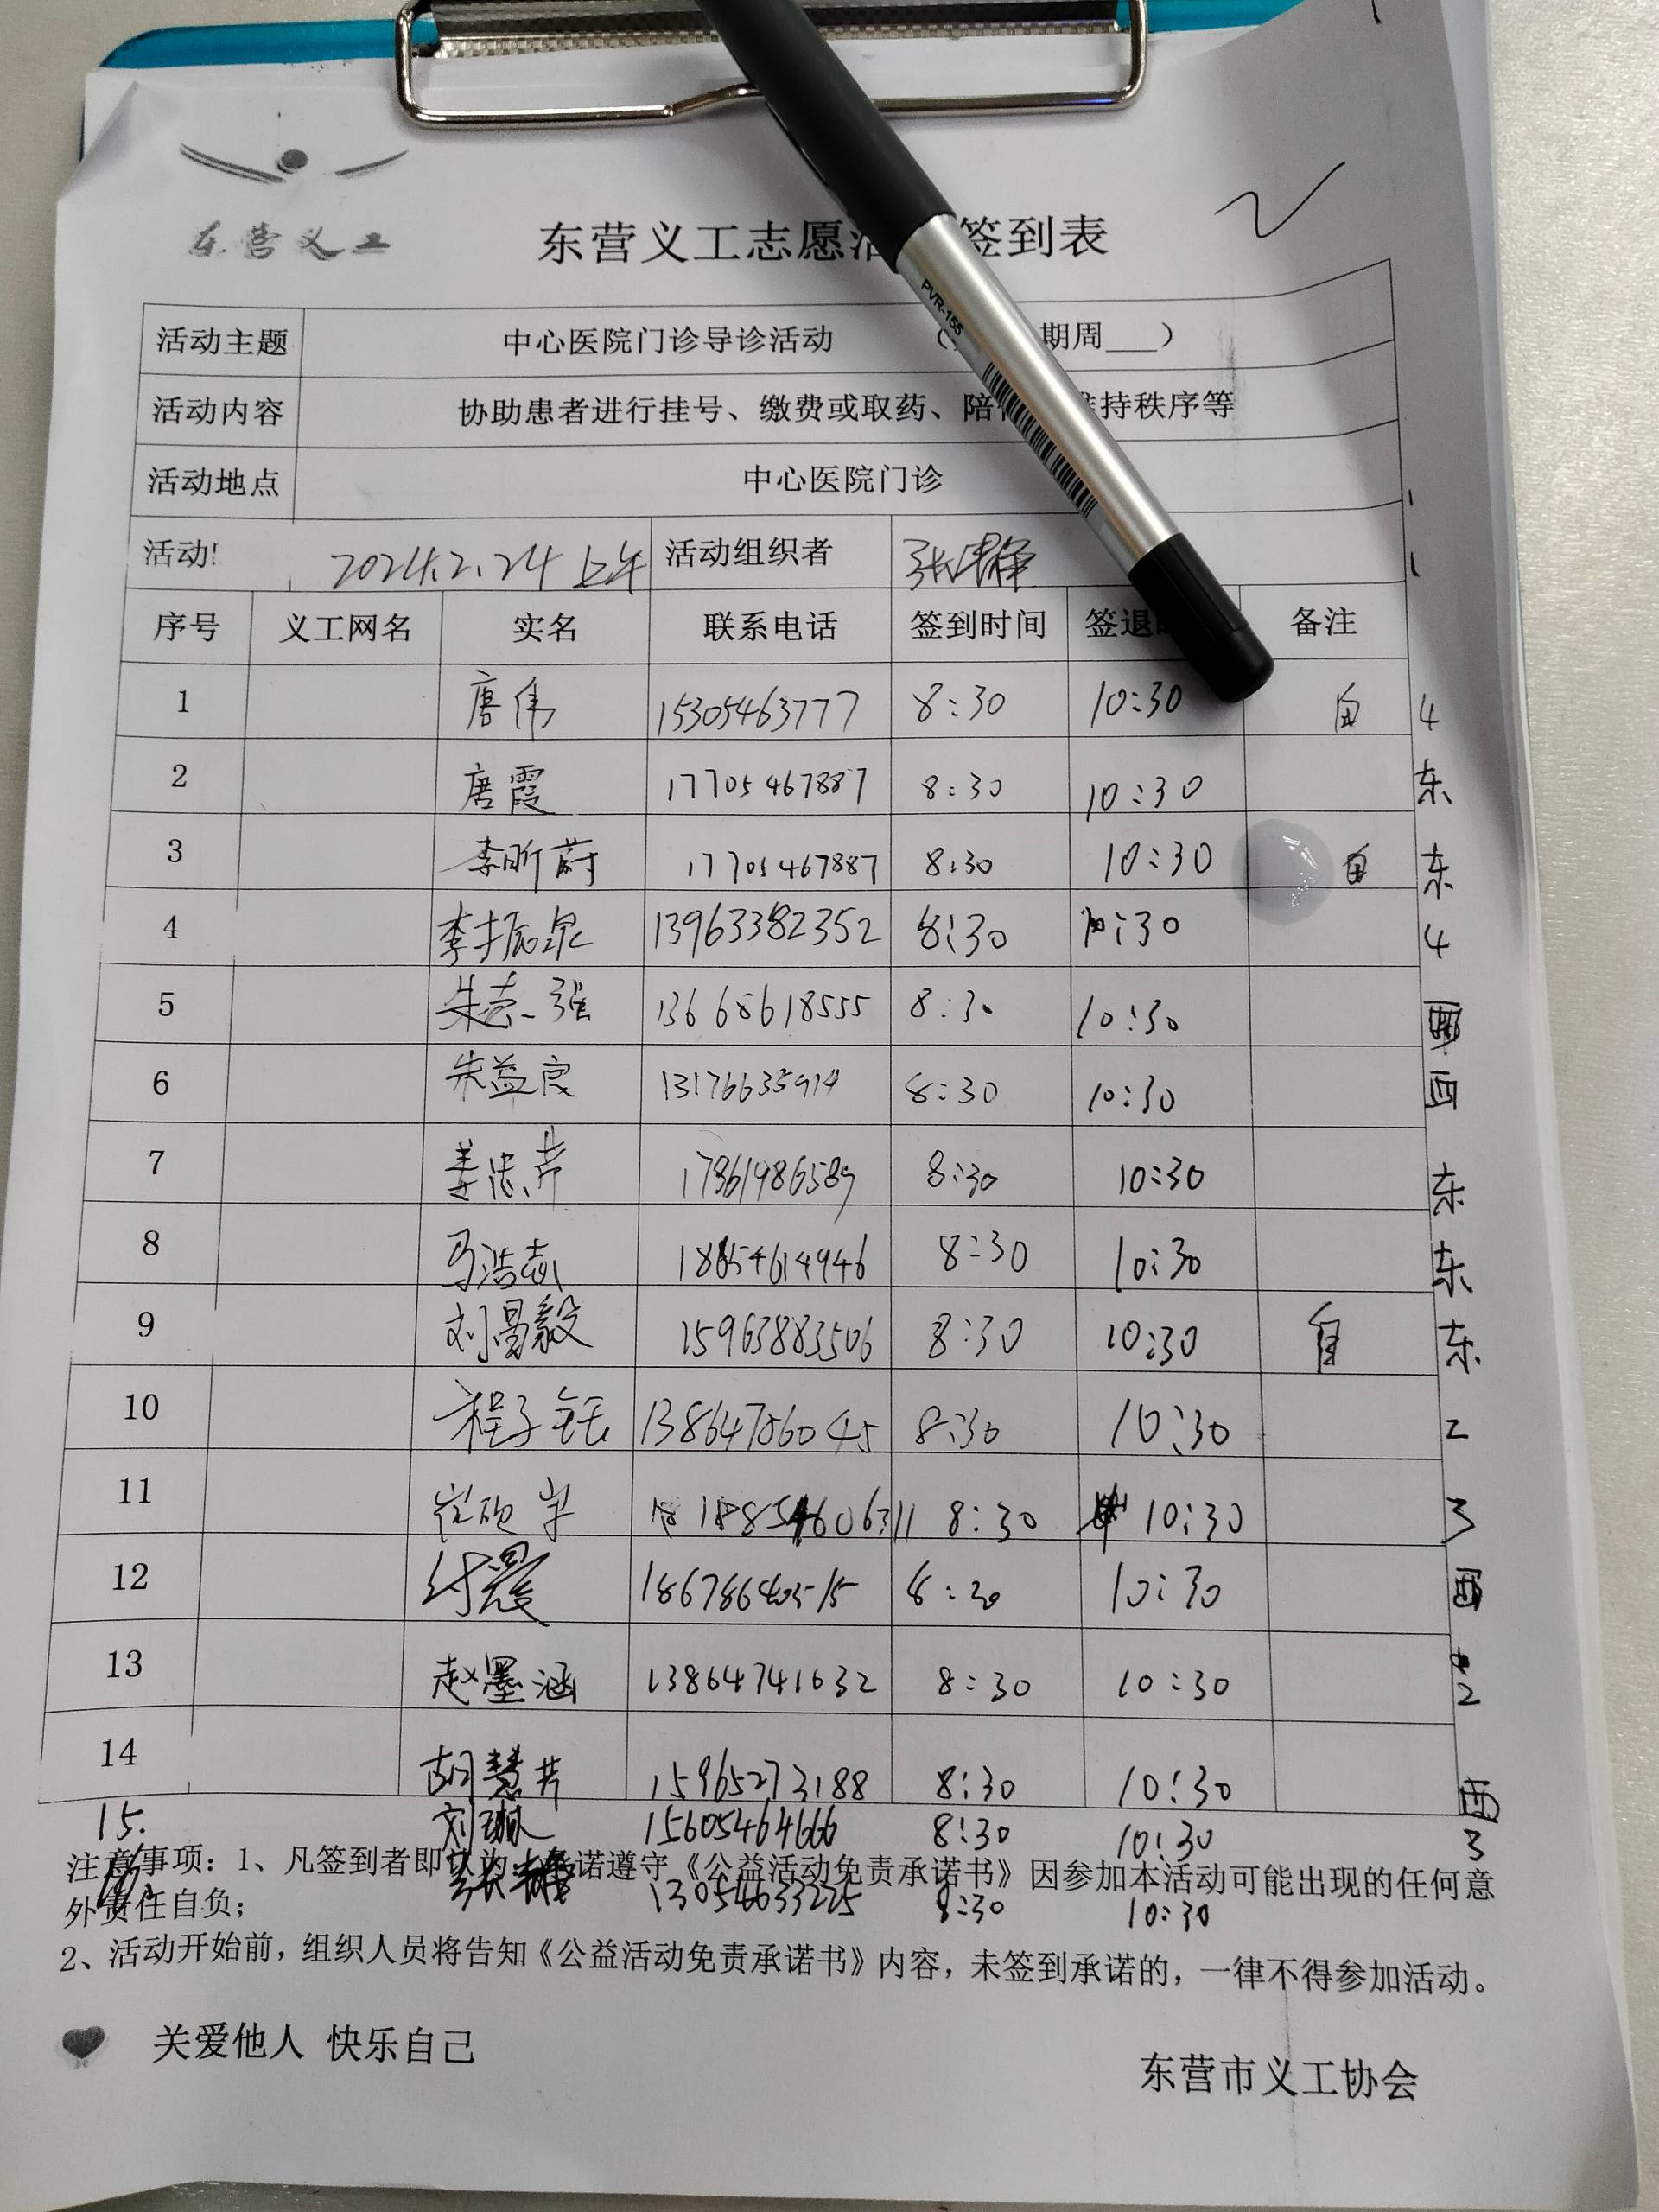 东营义工
东营义工志愿活 签到表
活动主题 中心医院门诊导诊活动 ( 期周___)
活动内容 协助患者进行挂号、缴费或取药、陪 持秩序等
活动地点 中心医院门诊
活动 2024.2.24 上午 活动组织者
序号 义工网名 实名 联系电话 签到时间 签退 备注
1 唐伟 15305463777 8:30 10:30 自 4
2 唐霞 17705467887 8:30 10:30 东
3 李昕蔚 17705467887 8:30 10:30 自 东
4 李振泉 13963382352 8:30 10:30 4
5 朱志强 13668618555 8:30 10:30 西
6 朱益良 13176635914 8:30 10:30 西
7 姜忠芹 17861986589 8:30 10:30 东
8 马浩志 18654614946 8:30 10:30 东
9 刘昌毅 15963883506 8:30 10:30 自 东
10 程子钰 13864786045 8:30 10:30 2
11 崔砚宇 18854606311 8:30 10:30 3
12 付 8:30 10:30 西
13 赵墨涵 13864741632 8:30 10:30 2
14 胡慧芳 15965273188 8:30 10:30 西
15. 刘琳 15605464666 8:30 10:30 3
注意事项：1、凡签到者即认为 承诺遵守《公益活动免责承诺书》因参加本活动可能出现的任何意
16. 13054633225 8:30 10:30
外责任自负；
2、活动开始前，组织人员将告知《公益活动免责承诺书》内容，未签到承诺的，一律不得参加活动。
关爱他人 快乐自己
东营市义工协会
PVR-155